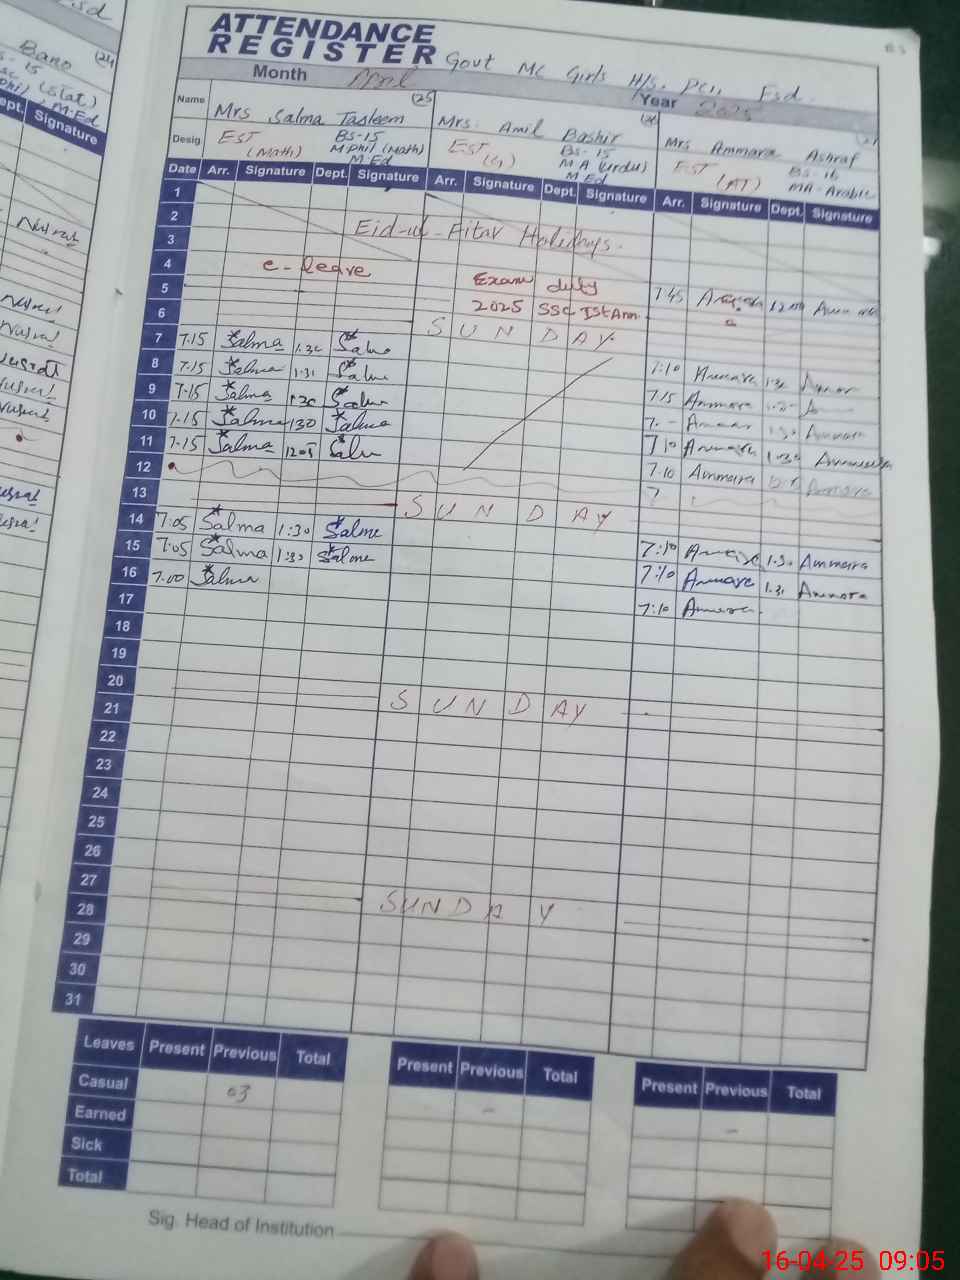 ATTENDANCE
REGISTER Govt MC Girls H/S. PCII Fsd.
Month April Year 2025
Name Mrs Salma Tasleem (25) Mrs. Amil Bashir (26) Mrs Ammara Ashraf
Desig EST (Math) BS-15 M Phil (Math) M.Ed EST BS-15 M A (Urdu) M Ed EST (AT) BS-16 MA-Arabic
Date Arr. Signature Dept. Signature Arr. Signature Dept. Signature Arr. Signature Dept. Signature
1
2 Eid-ul-Fitar Holidays.
3
4 c-leave Exam duty
5 2025 SSC Ist Ann. 7.45
6 SUNDAY
7 7.15 Salma 1.30 Salma
8 7.15 Salma 1.31 Salma 7:10 Ammara 1.30
9 7.15 Salma 1.30 Salma 7.15 Ammara
10 7.15 Salma 1.30 Salma Ammara
11 7.15 Salma 12.05 Salma 7.10 Ammara 1.30 Ammara
12 7.10 Ammara Ammara
13 SUNDAY
14 7.05 Salma 1:30 Salma
15 7.05 Salma 1:30 Salma 7:10 Ammara 1.30 Ammara
16 7.00 Salma 7:10 Ammara 1.31 Ammara
17 7:10 Ammara
18
19
20 SUNDAY
21
22
23
24
25
26
27 SUNDAY
28
29
30
31
Leaves Present Previous Total Present Previous Total Present Previous Total
Casual 03 - -
Earned
Sick
Total
Sig. Head of Institution
Bano (24)
BS-15
(Stat)
M.Ed
Dept. Signature
Nusrat
Nusrat
Nusrat
Nusrat
Nusrat
Nusrat
Nusrat
Nusrat
16-04-25 09:05